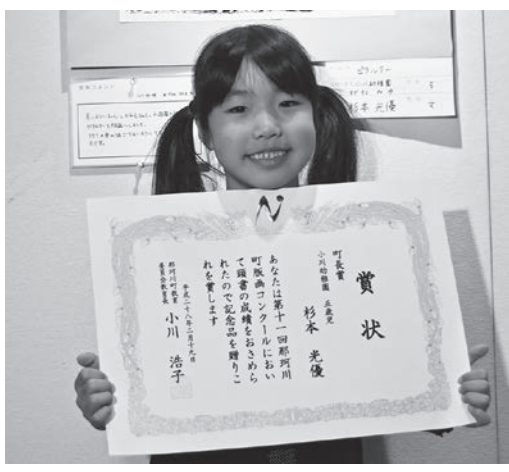 賞状
町長賞
小川幼稚園 五歳児
杉本 光優
あなたは第十一回那珂川
町版画コンクールにおい
て頭書の成績をおさめら
れたので記念品を贈りこ
れを賞します
平成二十八年二月十九日
那珂川町教育
委員会教育長 小川 浩子
杉本 光優